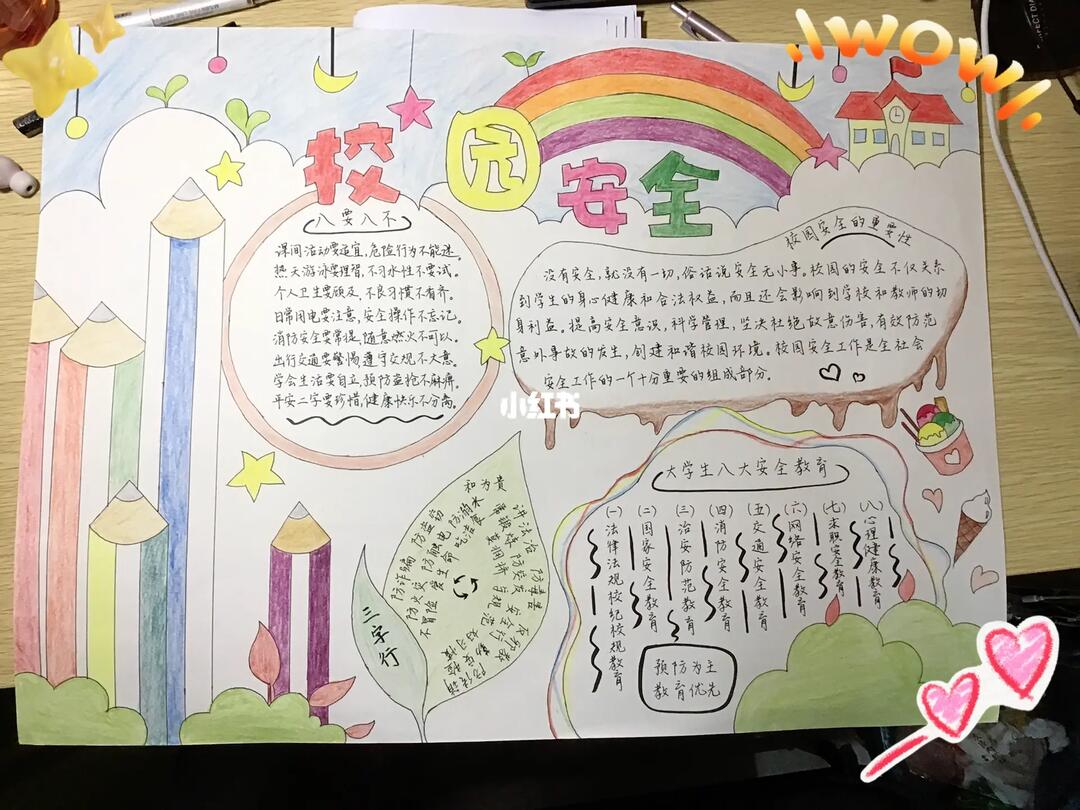 WOW!
校园安全
八要八不
课间活动要适宜,危险行为不能迷。
热天游泳要理智,不习水性不要试。
个人卫生要顾及,不良习惯不看齐。
日常用电要注意,安全操作不忘记。
消防安全要常提,随意燃火不可以。
出行交通要警惕,遵守交规不大意。
学会生活要自立,预防盗抢不麻痹。
平安二字要珍惜,健康快乐不分离。
校园安全的重要性
没有安全,就没有一切,俗话说安全无小事。校园的安全不仅关系
到学生的身心健康和合法权益,而且还会影响到学校和教师的切
身利益。提高安全意识,科学管理,坚决杜绝故意伤害,有效防范
意外事故的发生,创建和谐校园环境。校园安全工作是全社会
安全工作的一个十分重要的组成部分。
小红书
三字行
和为贵
讲法治
防溺水
防盗窃
防触电
防诈骗
防火灾
爱生命
不冒险
大学生八大安全教育
(一)法律法规校纪校规教育
(二)国家安全教育
(三)治安防范教育
(四)消防安全教育
(五)交通安全教育
(六)网络安全教育
(七)求职安全教育
(八)心理健康教育
预防为主
教育优先